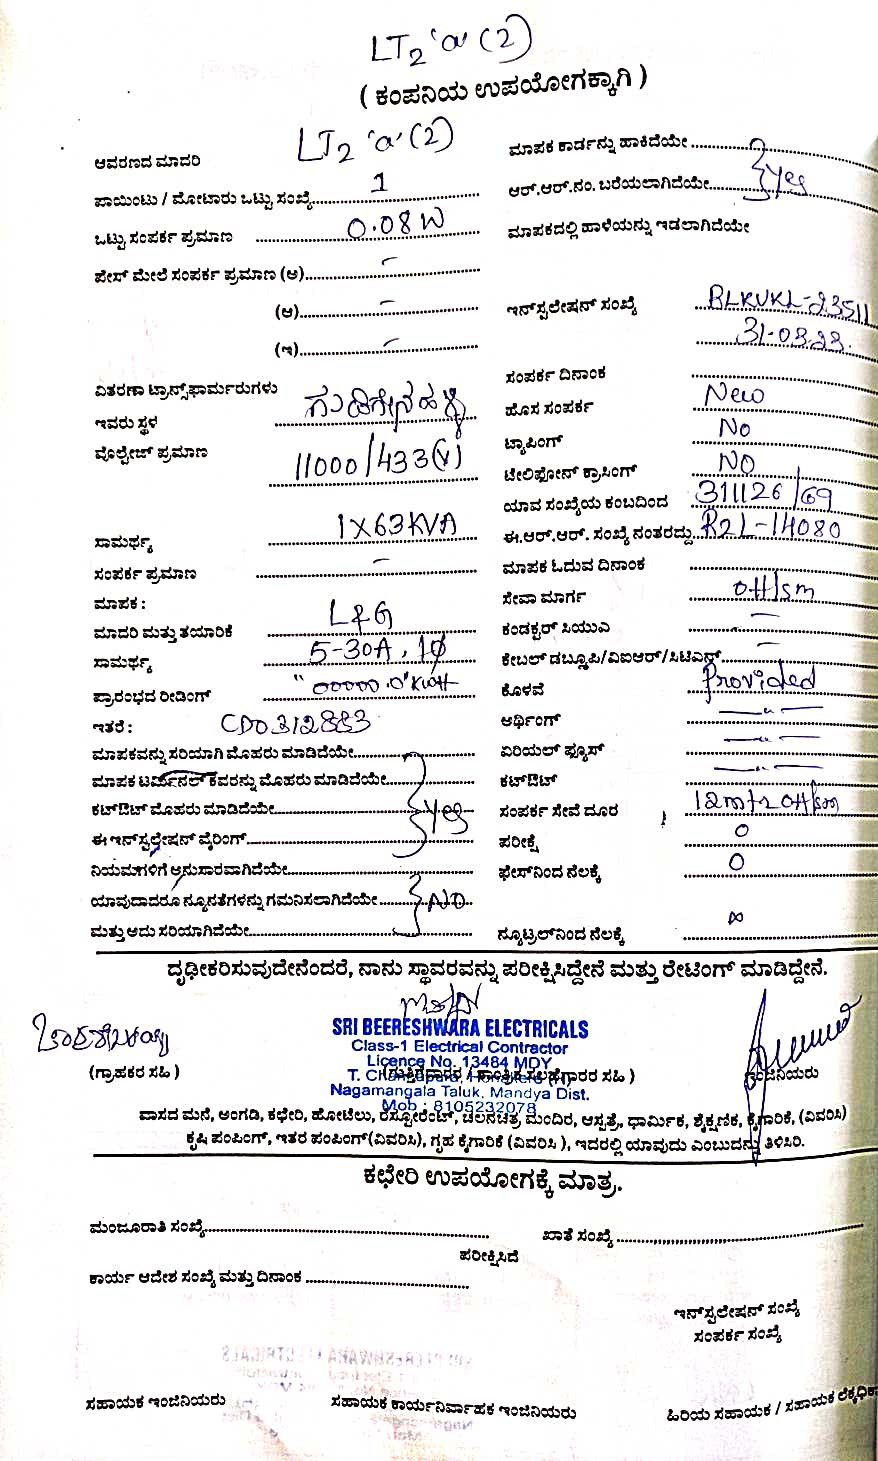 LT2 'a' (2)
( ಕಂಪನಿಯ ಉಪಯೋಗಕ್ಕಾಗಿ )
ಆವರಣದ ಮಾದರಿ LT2 'a' (2)
ಮಾಪಕ ಕಾರ್ಡನ್ನು ಹಾಕಿದೆಯೇ
ಪಾಯಿಂಟು / ಮೋಟಾರು ಒಟ್ಟು ಸಂಖ್ಯೆ 1
ಆರ್.ಆರ್.ನಂ. ಬರೆಯಲಾಗಿದೆಯೇ Yes
ಒಟ್ಟು ಸಂಪರ್ಕ ಪ್ರಮಾಣ 0.08 W
ಮಾಪಕದಲ್ಲಿ ಹಾಳೆಯನ್ನು ಇಡಲಾಗಿದೆಯೇ
ಪೇಸ್ ಮೇಲೆ ಸಂಪರ್ಕ ಪ್ರಮಾಣ (ಅ) –
(ಆ) –
ಇನ್‌ಸ್ಪಲೇಷನ್ ಸಂಖ್ಯೆ BLKVKL-23511
31-03-23.
(ಇ) –
ಸಂಪರ್ಕ ದಿನಾಂಕ
ವಿತರಣಾ ಟ್ರಾನ್ಸ್‌ಫಾರ್ಮರುಗಳು
ಇವರು ಸ್ಥಳ
ಹೊಸ ಸಂಪರ್ಕ New
ವೊಲ್ಟೇಜ್ ಪ್ರಮಾಣ 11000/433(V)
ಟ್ಯಾಪಿಂಗ್ No
ಟೇಲಿಫೋನ್ ಕ್ರಾಸಿಂಗ್ NO
ಯಾವ ಸಂಖ್ಯೆಯ ಕಂಬದಿಂದ 311126/69
ಸಾಮರ್ಥ್ಯ 1X63KVA
ಈ.ಆರ್.ಆರ್. ಸಂಖ್ಯೆ ನಂತರದ್ದು R2L-14080
ಸಂಪರ್ಕ ಪ್ರಮಾಣ –
ಮಾಪಕ ಓದುವ ದಿನಾಂಕ
ಮಾಪಕ :
ಸೇವಾ ಮಾರ್ಗ OH/sm
ಮಾದರಿ ಮತ್ತು ತಯಾರಿಕೆ L&G
ಕಂಡಕ್ಟರ್ ಸಿಯುಎ –
ಸಾಮರ್ಥ್ಯ 5-30A, 1φ
ಕೇಬಲ್ ಡಬ್ಲೂಪಿ/ವಿಐಆರ್/ಸಿಟಿಎಸ್ –
ಪ್ರಾರಂಭದ ರೀಡಿಂಗ್ "00000.0" KWH
ಕೊಳವೆ Provided
ಇತರೆ : CD0312883
ಅರ್ಥಿಂಗ್ —"—
ಮಾಪಕವನ್ನು ಸರಿಯಾಗಿ ಮೊಹರು ಮಾಡಿದೆಯೇ
ಏರಿಯಲ್ ಫ್ಯೂಸ್ —"—
ಮಾಪಕ ಟರ್ಮಿನಲ್ ಕವರನ್ನು ಮೊಹರು ಮಾಡಿದೆಯೇ
ಕಟ್‌ಔಟ್ —"—
ಕಟ್‌ಔಟ್ ಮೊಹರು ಮಾಡಿದೆಯೇ Yes
ಸಂಪರ್ಕ ಸೇವೆ ದೂರ 12mtr OH/sm
ಈ ಇನ್‌ಸ್ಪಲೇಷನ್ ವೈರಿಂಗ್
ಪರೀಕ್ಷೆ 0
ನಿಯಮಗಳಿಗೆ ಅನುಸಾರವಾಗಿದೆಯೇ
ಫೇಸ್‌ನಿಂದ ನೆಲಕ್ಕೆ 0
ಯಾವುದಾದರೂ ನ್ಯೂನತೆಗಳನ್ನು ಗಮನಿಸಲಾಗಿದೆಯೇ NO
ಮತ್ತು ಅದು ಸರಿಯಾಗಿದೆಯೇ
ನ್ಯೂಟ್ರಲ್‌ನಿಂದ ನೆಲಕ್ಕೆ ∞
ದೃಢೀಕರಿಸುವುದೇನೆಂದರೆ, ನಾನು ಸ್ಥಾವರವನ್ನು ಪರೀಕ್ಷಿಸಿದ್ದೇನೆ ಮತ್ತು ರೇಟಿಂಗ್ ಮಾಡಿದ್ದೇನೆ.
SRI BEERESHWARA ELECTRICALS
Class-1 Electrical Contractor
Licence No. 13484 MDY
(ಗ್ರಾಹಕರ ಸಹಿ )
ಸಹಿ )
ಇಂಜಿನಿಯರು
Nagamangala Taluk, Mandya Dist.
Mob : 8105232078
ವಾಸದ ಮನೆ, ಅಂಗಡಿ, ಕಛೇರಿ, ಹೋಟೆಲು, ರೆಸ್ಟೋರೆಂಟ್, ಚಲನಚಿತ್ರ ಮಂದಿರ, ಆಸ್ಪತ್ರೆ, ಧಾರ್ಮಿಕ, ಶೈಕ್ಷಣಿಕ, ಕೈಗಾರಿಕೆ, (ವಿವರಿಸಿ)
ಕೃಷಿ ಪಂಪಿಂಗ್, ಇತರ ಪಂಪಿಂಗ್(ವಿವರಿಸಿ), ಗೃಹ ಕೈಗಾರಿಕೆ (ವಿವರಿಸಿ ), ಇದರಲ್ಲಿ ಯಾವುದು ಎಂಬುದನ್ನು ತಿಳಿಸಿರಿ.
ಕಛೇರಿ ಉಪಯೋಗಕ್ಕೆ ಮಾತ್ರ.
ಮಂಜೂರಾತಿ ಸಂಖ್ಯೆ
ಖಾತೆ ಸಂಖ್ಯೆ
ಪರೀಕ್ಷಿಸಿದೆ
ಕಾರ್ಯ ಆದೇಶ ಸಂಖ್ಯೆ ಮತ್ತು ದಿನಾಂಕ
ಇನ್‌ಸ್ಪಲೇಷನ್ ಸಂಖ್ಯೆ
ಸಂಪರ್ಕ ಸಂಖ್ಯೆ
ಸಹಾಯಕ ಇಂಜಿನಿಯರು
ಸಹಾಯಕ ಕಾರ್ಯನಿರ್ವಾಹಕ ಇಂಜಿನಿಯರು
ಹಿರಿಯ ಸಹಾಯಕ / ಸಹಾಯಕ